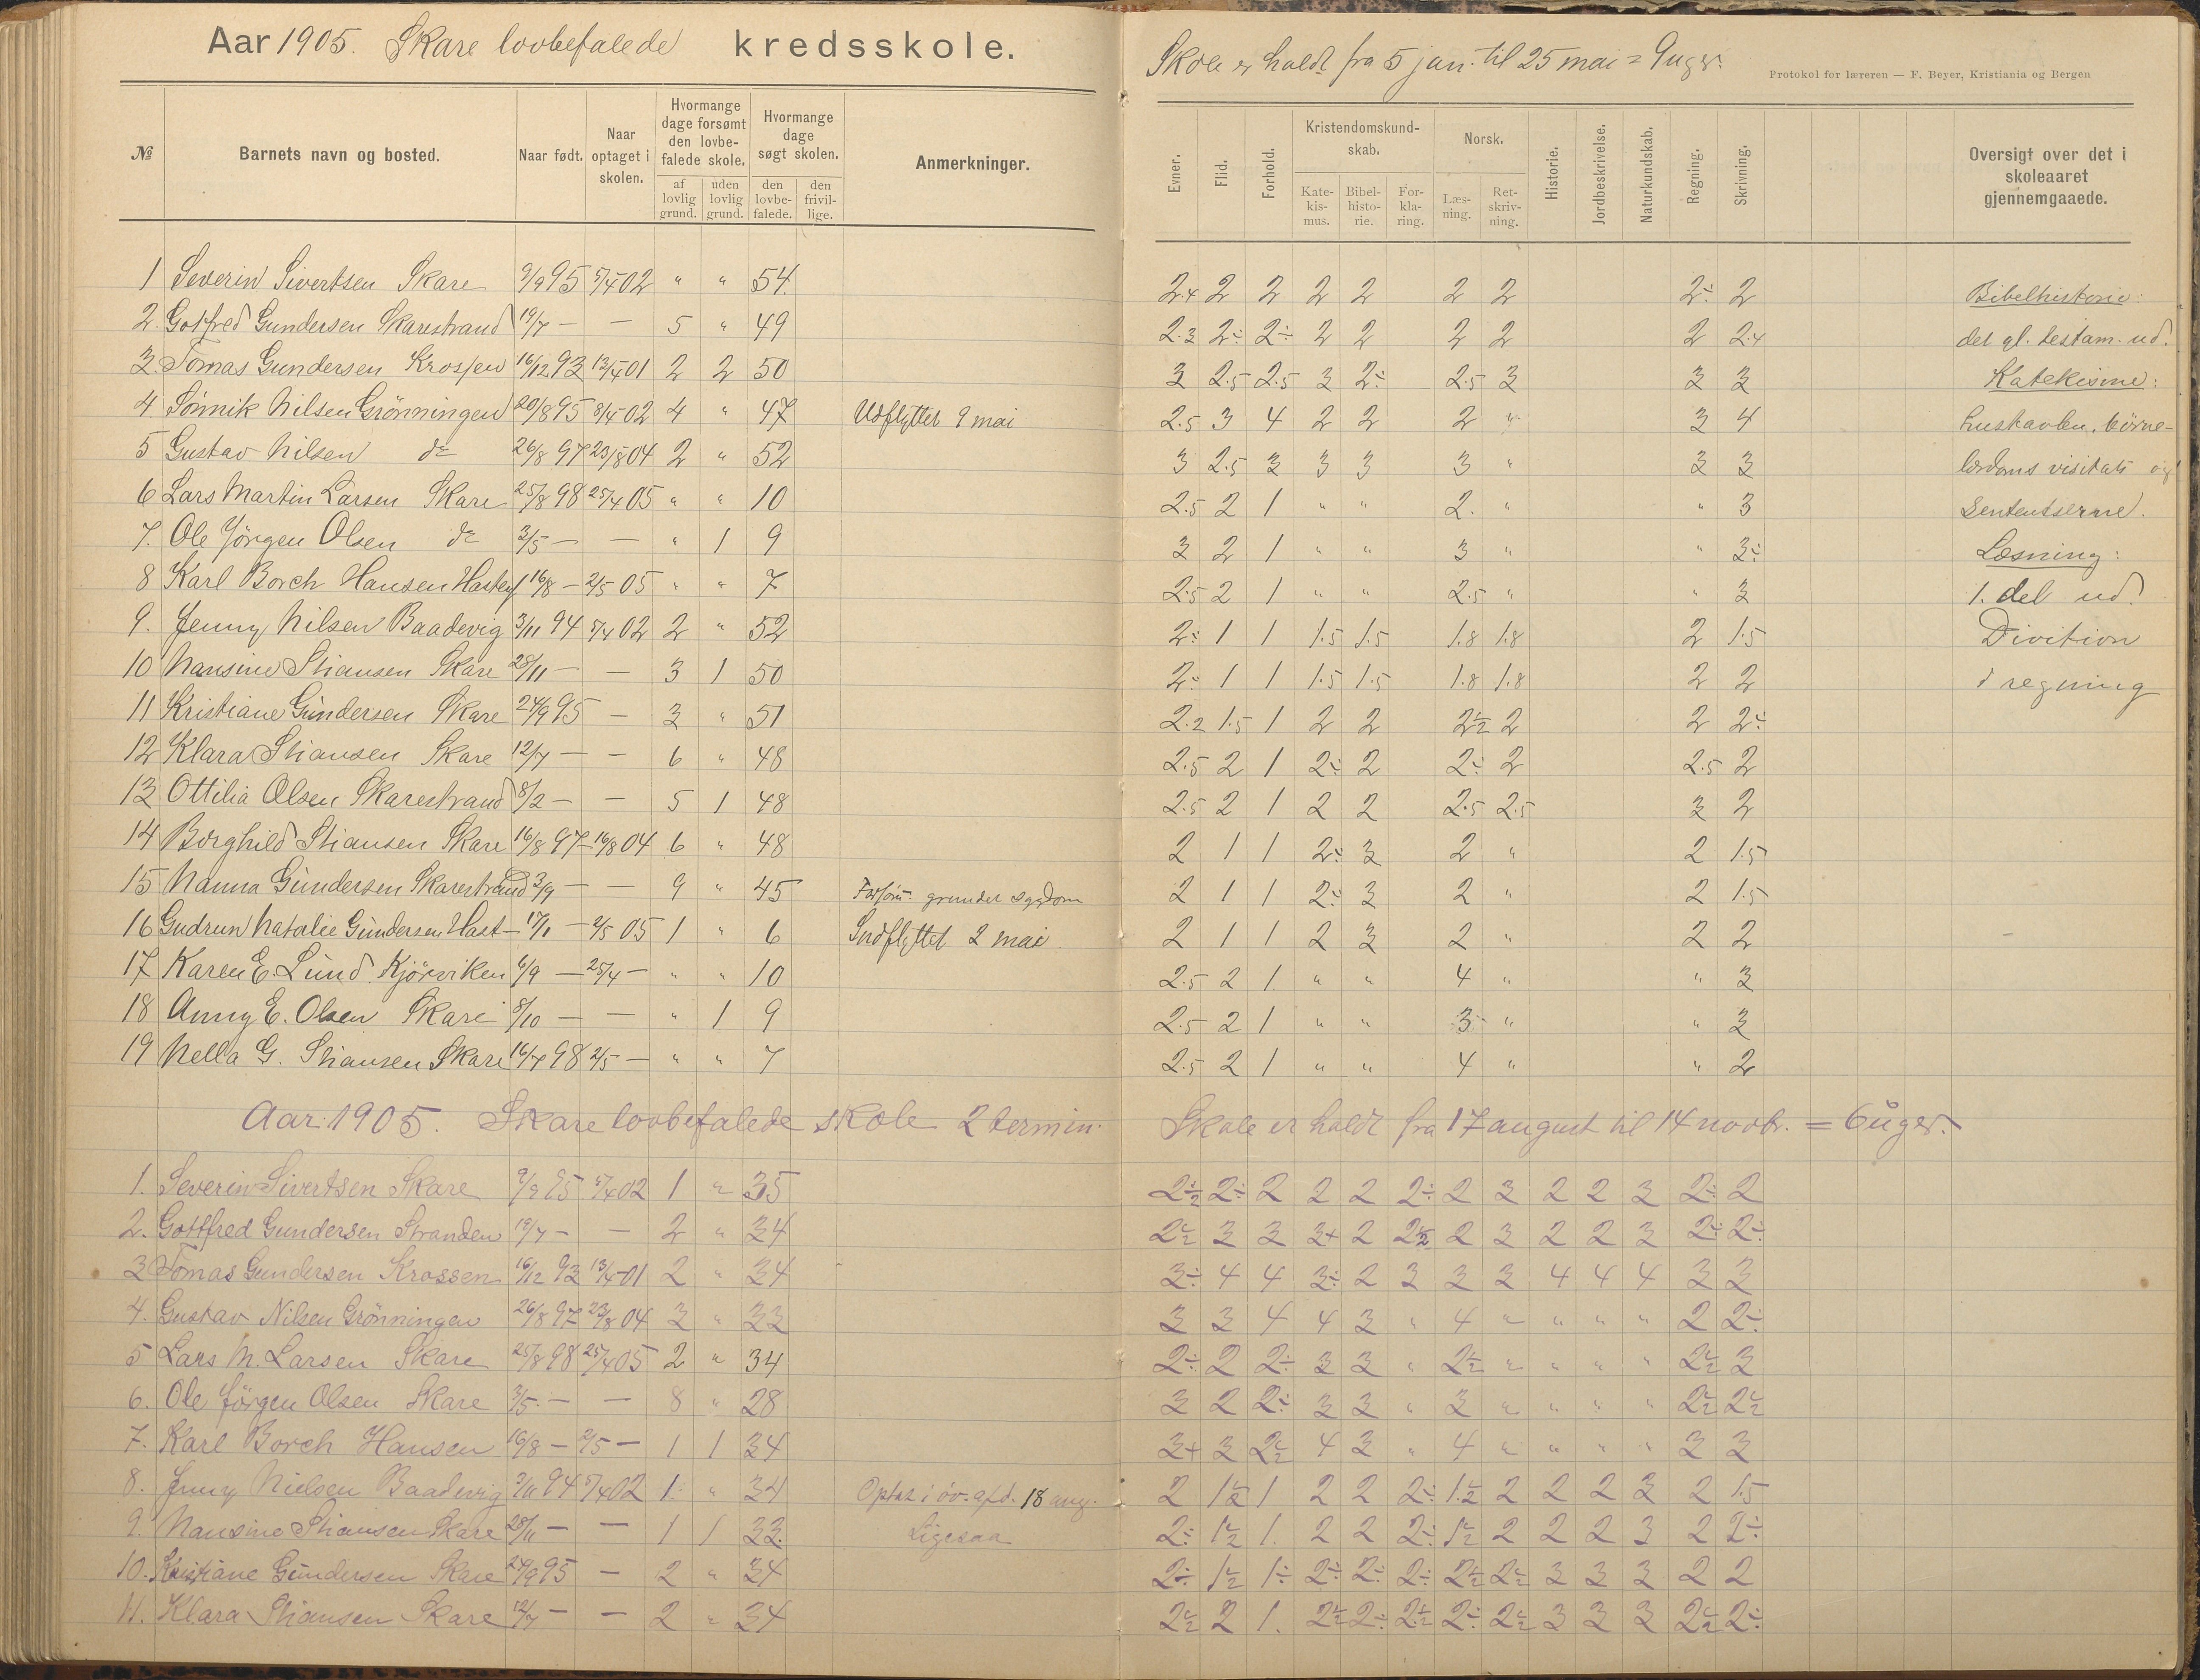 Aar 1905. Skare lovbefalede kredsskole.
Skole er holdt fra 5 jan. til 25 mai = 9 uger.
Protokol for læreren — F. Beyer, Kristiania og Bergen
№ Barnets navn og bosted. Naar født. Naar optaget i skolen. Hvormange dage forsømt den lovbefalede skole. af lovlig grund. uden lovlig grund. Hvormange dage søgt skolen. den lovbefalede. den frivillige. Anmerkninger.
Evner. Flid. Forhold. Kristendomskundskab. Katekismus. Bibelhistorie. Forklaring. Norsk. Læsning. Retskrivning. Historie. Jordbeskrivelse. Naturkundskab. Regning. Skrivning. Oversigt over det i skoleaaret gjennemgaaede.
1 Severin Sivertsen Skare 9/9 95 5/4 02 " " 54. 2.4 2 2 2 2 2 2 2÷ 2 Bibelhistorie:
2. Gotfred Gundersen Skarestrand 19/7 — — 5 " 49 2.3 2÷ 2÷ 2 2 2 2 2 2.4 det gl. testam. ud.
3. Tomas Gundersen Krossen 16/12 93 13/4 01 2 2 50 3 2.5 2.5 3 2÷ 2.5 3 3 3 Katekisme:
4. Sönnik Nilsen Grönningen 20/8 95 8/4 02 4 " 47 Udflyttet 9 mai 2.5 3 4 2 2 2 " 3 4 hustavlen, börne-
5 Gustav Nilsen do 26/8 97 23/8 04 2 " 52 3 2.5 3 3 3 3 " 3 3 lærdoms visitats og
6 Lars Martin Larsen Skare 25/8 98 25/4 05 " " 10 2.5 2 1 " " 2. " " 3 sententserne.
7. Ole Jörgen Olsen do 3/5 — — " 1 9 3 2 1 " " 3 " " 3÷ Læsning:
8 Karl Borch Hansen 16/8 — 2/5 05 " " 7 2.5 2 1 " " 2.5 " " 3 1. del ud.
9. Jenny Nilsen Baadevig 3/11 94 5/4 02 2 " 52 2÷ 1 1 1.5 1.5 1.8 1.8 2 1.5 Divition
10 Nansine Stiansen Skare 28/11 — — 3 1 50 2÷ 1 1 1.5 1.5 1.8 1.8 2 2 i regning
11 Kristiane Gundersen Skare 24/9 95 — 3 " 51 2.2 1.5 1 2 2 2½ 2 2 2÷
12 Klara Stiansen Skare 12/7 — — 6 " 48 2.5 2 1 2÷ 2 2÷ 2 2.5 2
13 Ottilia Olsen Skarestrand 8/2 — — 5 1 48 2.5 2 1 2 2 2.5 2.5 3 2
14 Borghild Stiansen Skare 16/8 97 16/8 04 6 " 48 2 1 1 2÷ 3 2 " 2 1.5
15 Nanna Gundersen Skarestrand 3/9 — — 9 " 45 Forsöm. grundet sygdom 2 1 1 2÷ 3 2 " 2 1.5
16 Gudrun Natalie Gundersen Hast- 17/1 — 2/5 05 1 " 6 Indflyttet 2 mai 2 1 1 2 3 2 " 2 2
17 Karen E. Lund Kjörviken 6/9 — 25/4 — " " 10 2.5 2 1. " " 4 " " 3
18 Anny E. Olsen Skare 8/10 — — " 1 9 2.5 2 1 " " 3 " " 3
19 Nella G. Stiansen Skare 16/7 98 2/5 — " " 7 2.5 2 1 " " 4 " " 2
Aar 1905. Skare lovbefalede skole 2 termin. Skole er holdt fra 17 august til 14 novbr. = 6 uger.
1. Severin Sivertsen Skare 9/9 95 5/4 02 1 " 35 2½ 2÷ 2 2 2 2÷ 2 3 2 2 3 2÷ 2
2. Gottfred Gundersen Stranden 19/7 — — 2 " 34 2½ 3 3 3+ 2 2½ 2 3 2 2 3 2÷ 2÷
3 Tomas Gundersen Krossen 16/12 93 13/4 01 2 " 34 3÷ 4 4 3÷ 2 3 3 3 4 4 4 3 3
4. Gustav Nilsen Grönningen 26/8 97 23/8 04 3 " 33 3 3 4 4 3 " 4 " " " " 2 2÷
5 Lars M. Larsen Skare 25/8 98 25/4 05 2 " 34 2÷ 2 2÷ 3 3 " 2½ " " " " 2½ 3
6. Ole Jörgen Olsen Skare 3/5 — — 8 " 28 3 2 2÷ 3 3 " 3 " " " " 2½ 2½
7. Karl Borch Hansen 16/8 — 2/5 — 1 1 34 3+ 3 2½ 4 3 " 4 " " " " 3 3
8. Jenny Nielsen Baadevig 3/11 94 5/4 02 1. " 34 Optat i öv. afd. 18 aug. 2 1½ 1 2 2 2÷ 1½ 2 2 2 3 2 1.5
9. Nansine Stiansen Skare 28/11 — — 1 1 33. Ligesaa 2÷ 1½ 1. 2 2 2÷ 1½ 2 2 2 3 2 2÷
10. Kristiane Gundersen Skare 24/9 95 — 2 " 34 2÷ 1½ 1÷ 2÷ 2÷ 2÷ 2½ 2½ 3 3 3 2 2
11. Klara Stiansen Skare 12/7 — — 2 " 34 2½ 2 1. 2½ 2÷ 2½ 2÷ 2½ 3 3 3 2½ 2÷